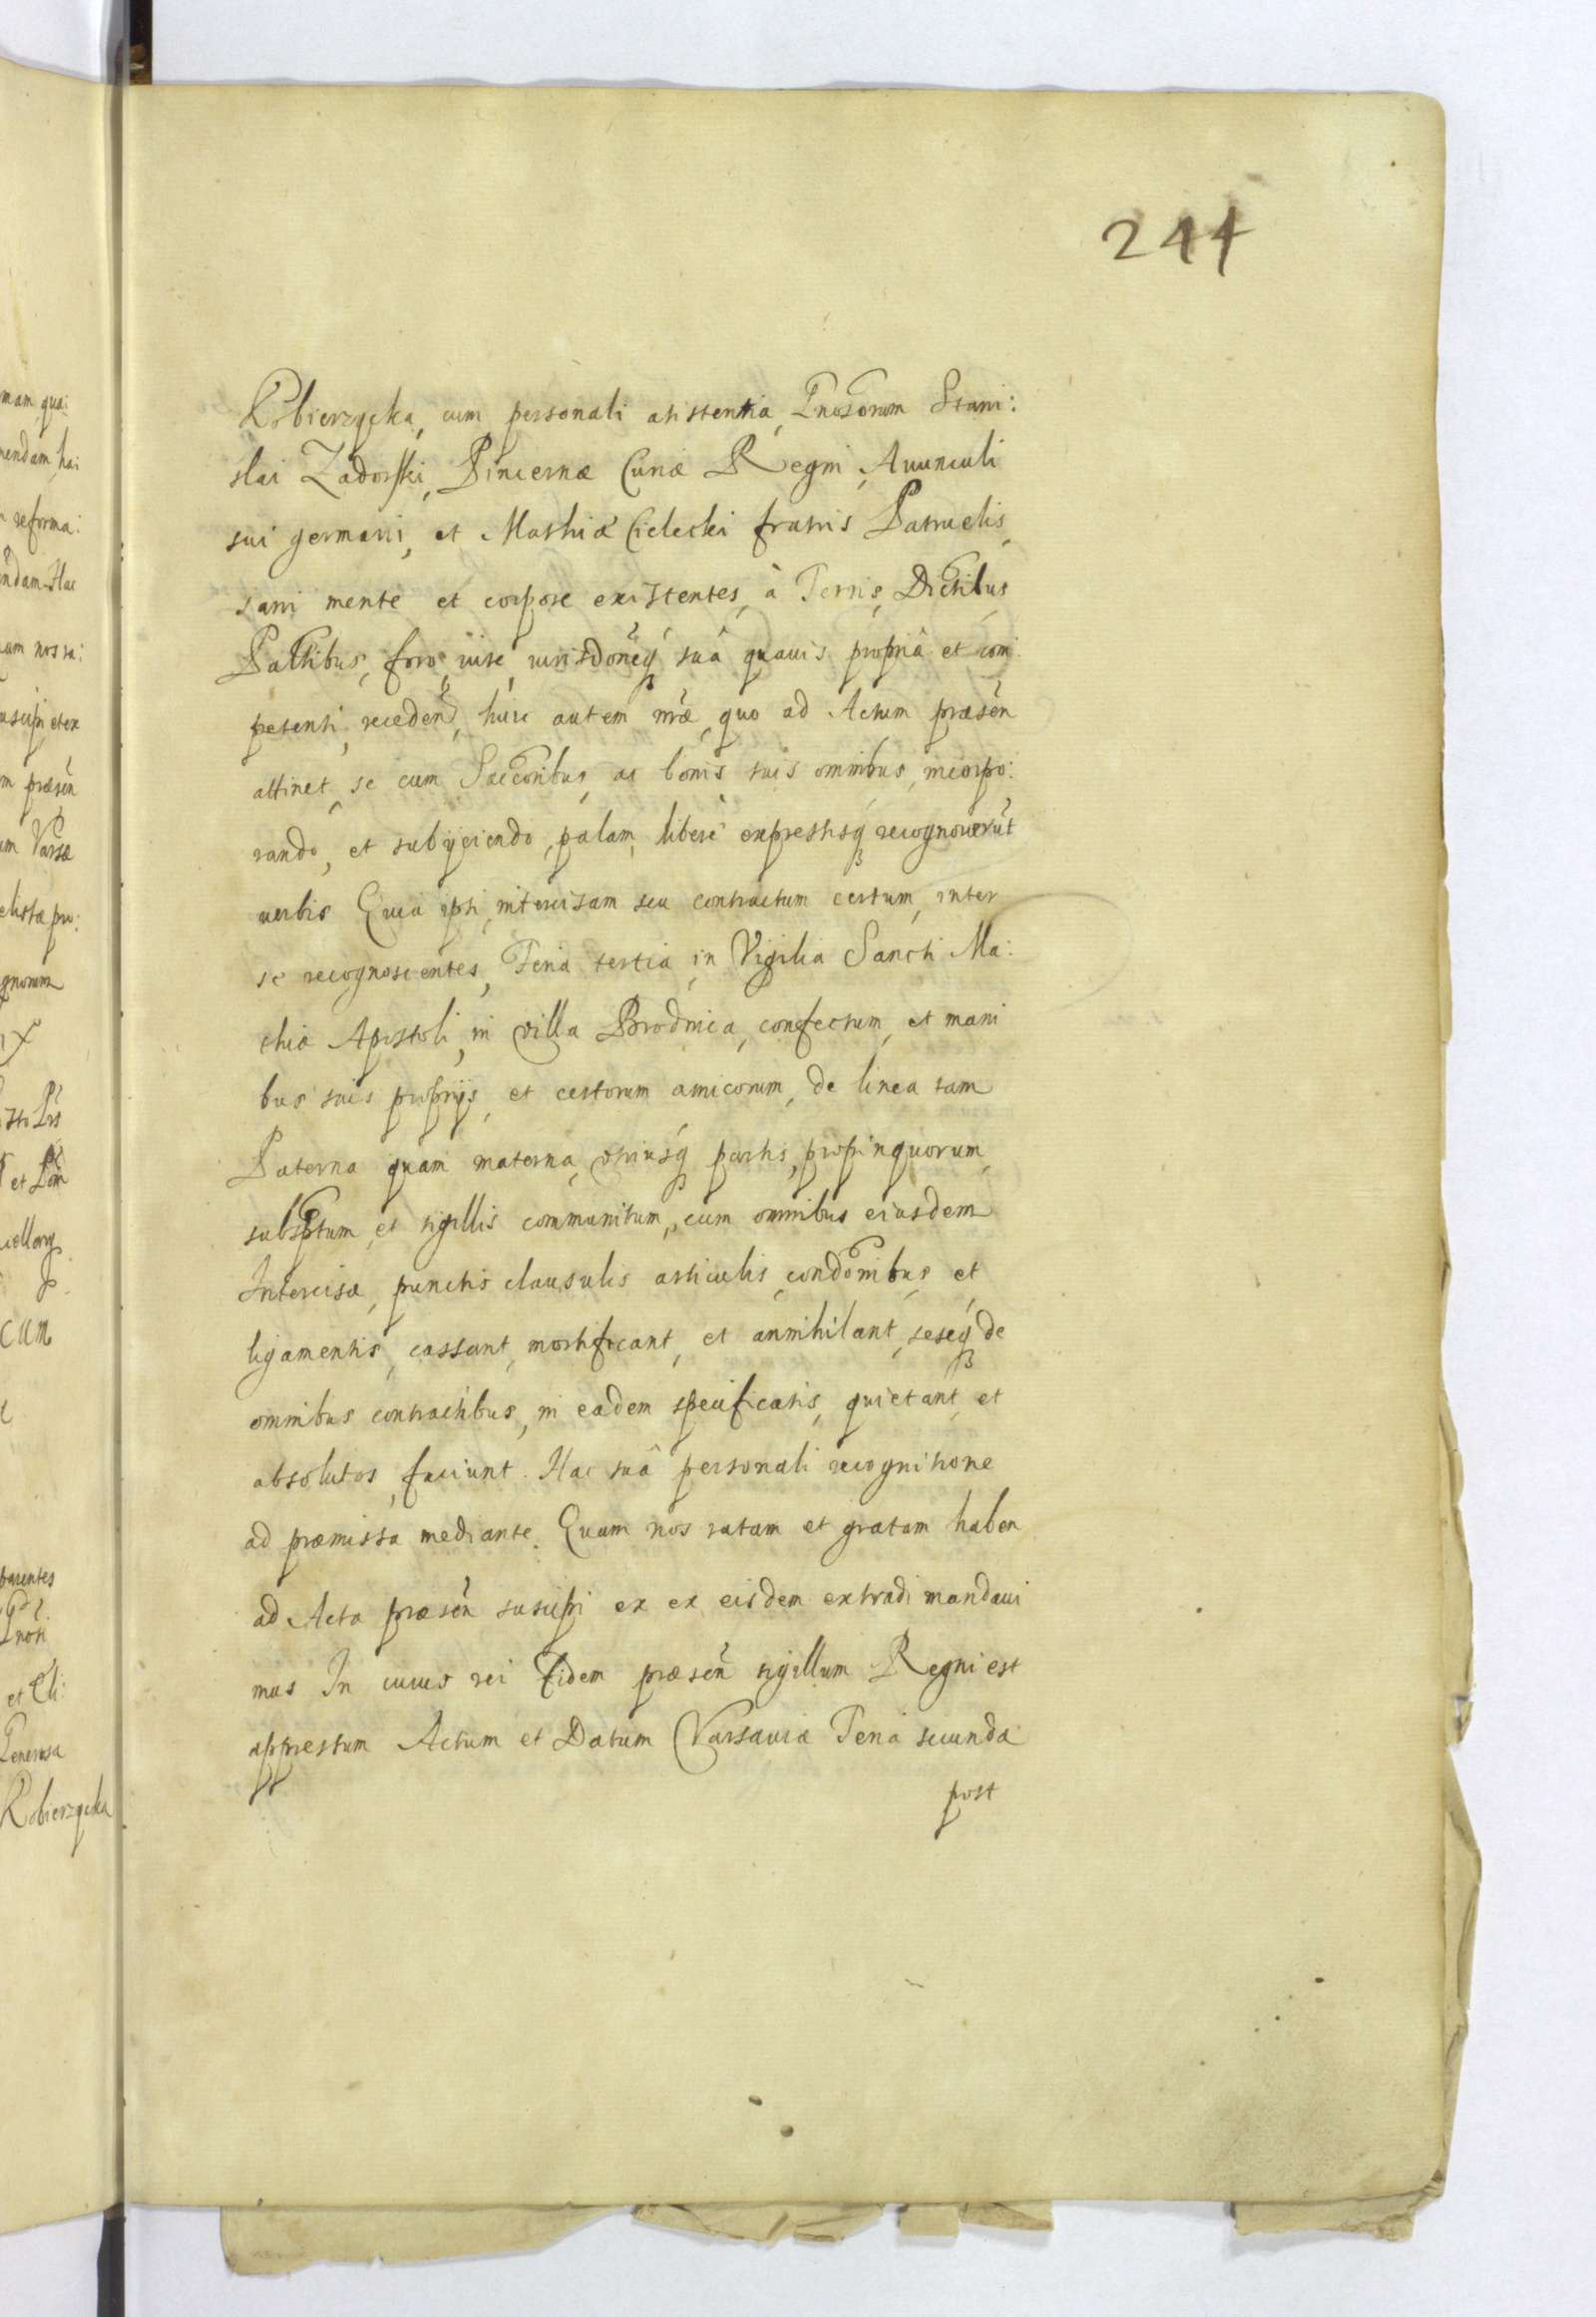 244
Kobierzycka, cum personali assistentia, Gnosorum Stani:
slai Zadorski, Pincernæ Curiæ Regni, Auunculi
sui germani, et Mathiæ Cielecki fratris Patruelis,
sani mente et corpore existentes, à Terris, Dictibus
Palatibus, foro, iure, iurisdoneq́ suâ quauis propriâ et com
petenti, receden̄, huic autem nrae, quo ad Actum præsen̄
attinet, se cum Saecoribus, ac bonis suis omnibus, incorpo:
rando, et subijciendo, palam, liberè expressisq́ recognouerūt
uerbis Quia ipsi, intercisam seu contractum certum, inter
se recognoscentes, Feria tertia in Vigilia Sancti Ma:
thiæ Apostoli, in villa Brodnica, confectum, et mani
bus suis proprijs, et certorum amicorum, de linea tam
Paterna quàm materna, vtriusq́ partis, propinquorum,
subsptum, et sigillis communitum, cum omnibus eiusdem
Intercisæ, punctis clausulis articulis, condonibus, et
ligamentis, cassant, mortificant, et annihilant, seseq́ de
omnibus contractibus, in eadem specificatis, quietant, et
absolutos, faciunt. Hac suâ personali recognitione
ad præmissa mediante. Quam nos ratam et gratam haben
ad Acta præsen̄ suscipi ex ex eisdem extradi mandaui
mus In cuius rei fidem præsen̄ sigillum Regni est
appressum Actum et Datum Varsauiæ Feria secunda
post
mam qua:
nendam hai
reforma:
ndam Hac
uam nos ra:
uscipi et ex
m præsen̄
um Varsæ
elistæ pro:
gnorum
et Pōn
CUM
parentes
et Eli:
Generosa
Kobierzycka